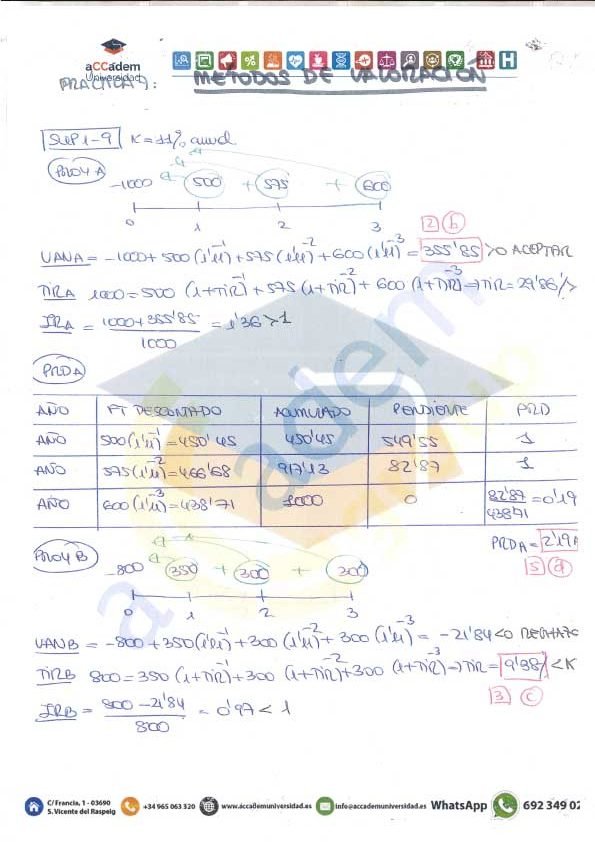 aCCadem
Universidad
PRÁCTICA 9: MÉTODOS DE VALORACIÓN
SUP 1-9 K = 11% anual
PROY A
-1000 500 + 575 + 600
0 1 2 3
2 b
VANA = -1000 + 500 (1'11)⁻¹ + 575 (1'11)⁻² + 600 (1'11)⁻³ = 355'85 > 0 ACEPTAR
TIRA 1000 = 500 (1+TIR)⁻¹ + 575 (1+TIR)⁻² + 600 (1+TIR)⁻³ → TIR = 29'86%>
IRA = 1000+355'85 / 1000 = 1'36 > 1
PRDA
AÑO FT DESCONTADO ACUMULADO PENDIENTE PRD
AÑO 500(1'11)⁻¹ = 450'45 450'45 549'55 1
AÑO 575(1'11)⁻² = 466'68 917'13 82'87 1
AÑO 600(1'11)⁻³ = 438'71 1000 0 82'87 / 438'71 = 0'19
PRDA = 2'19A
5 a
PROY B
-800 350 + 300 + 300
0 1 2 3
VANB = -800 + 350(1'11)⁻¹ + 300 (1'11)⁻² + 300 (1'11)⁻³ = -21'84 < 0 RECHAZO
TIRB 800 = 350 (1+TIR)⁻¹ + 300 (1+TIR)⁻² + 300 (1+TIR)⁻³ → TIR = 9'38% < K
3 c
IRB = 800 - 21'84 / 800 = 0'97 < 1
accadem
C/ Francia, 1 - 03690
S. Vicente del Raspeig
+34 965 063 320
www.accademuniversidad.es
info@accademuniversidad.es
WhatsApp
692 349 02